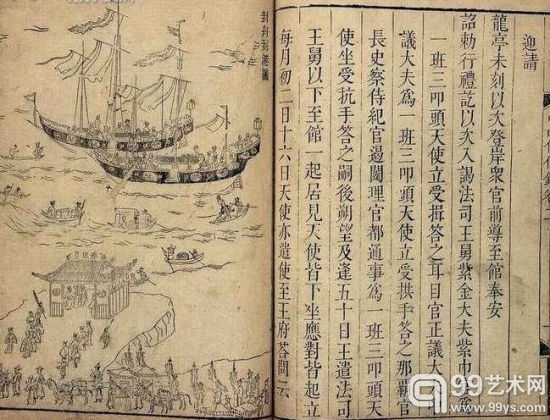 迎請
龍亭未刻以次登岸衆官前導至館奉安
詔勑行禮訖以次入謁法司王舅紫金大夫紫巾官爲
一班三叩頭天使立受揖答之耳目官正議大
議大夫爲一班三叩頭天使立受拱手答之那覇官
長史察侍紀官遏闥理官都通事爲一班三叩頭天
使坐受抗手答之嗣後朔望及逢五十日王遣法司
王舅以下至館一起居見天使皆下坐應對皆起立
每月初二日十六日天使亦遣使至王府答問云
封舟到港圖
99艺术网
www.99ys.com